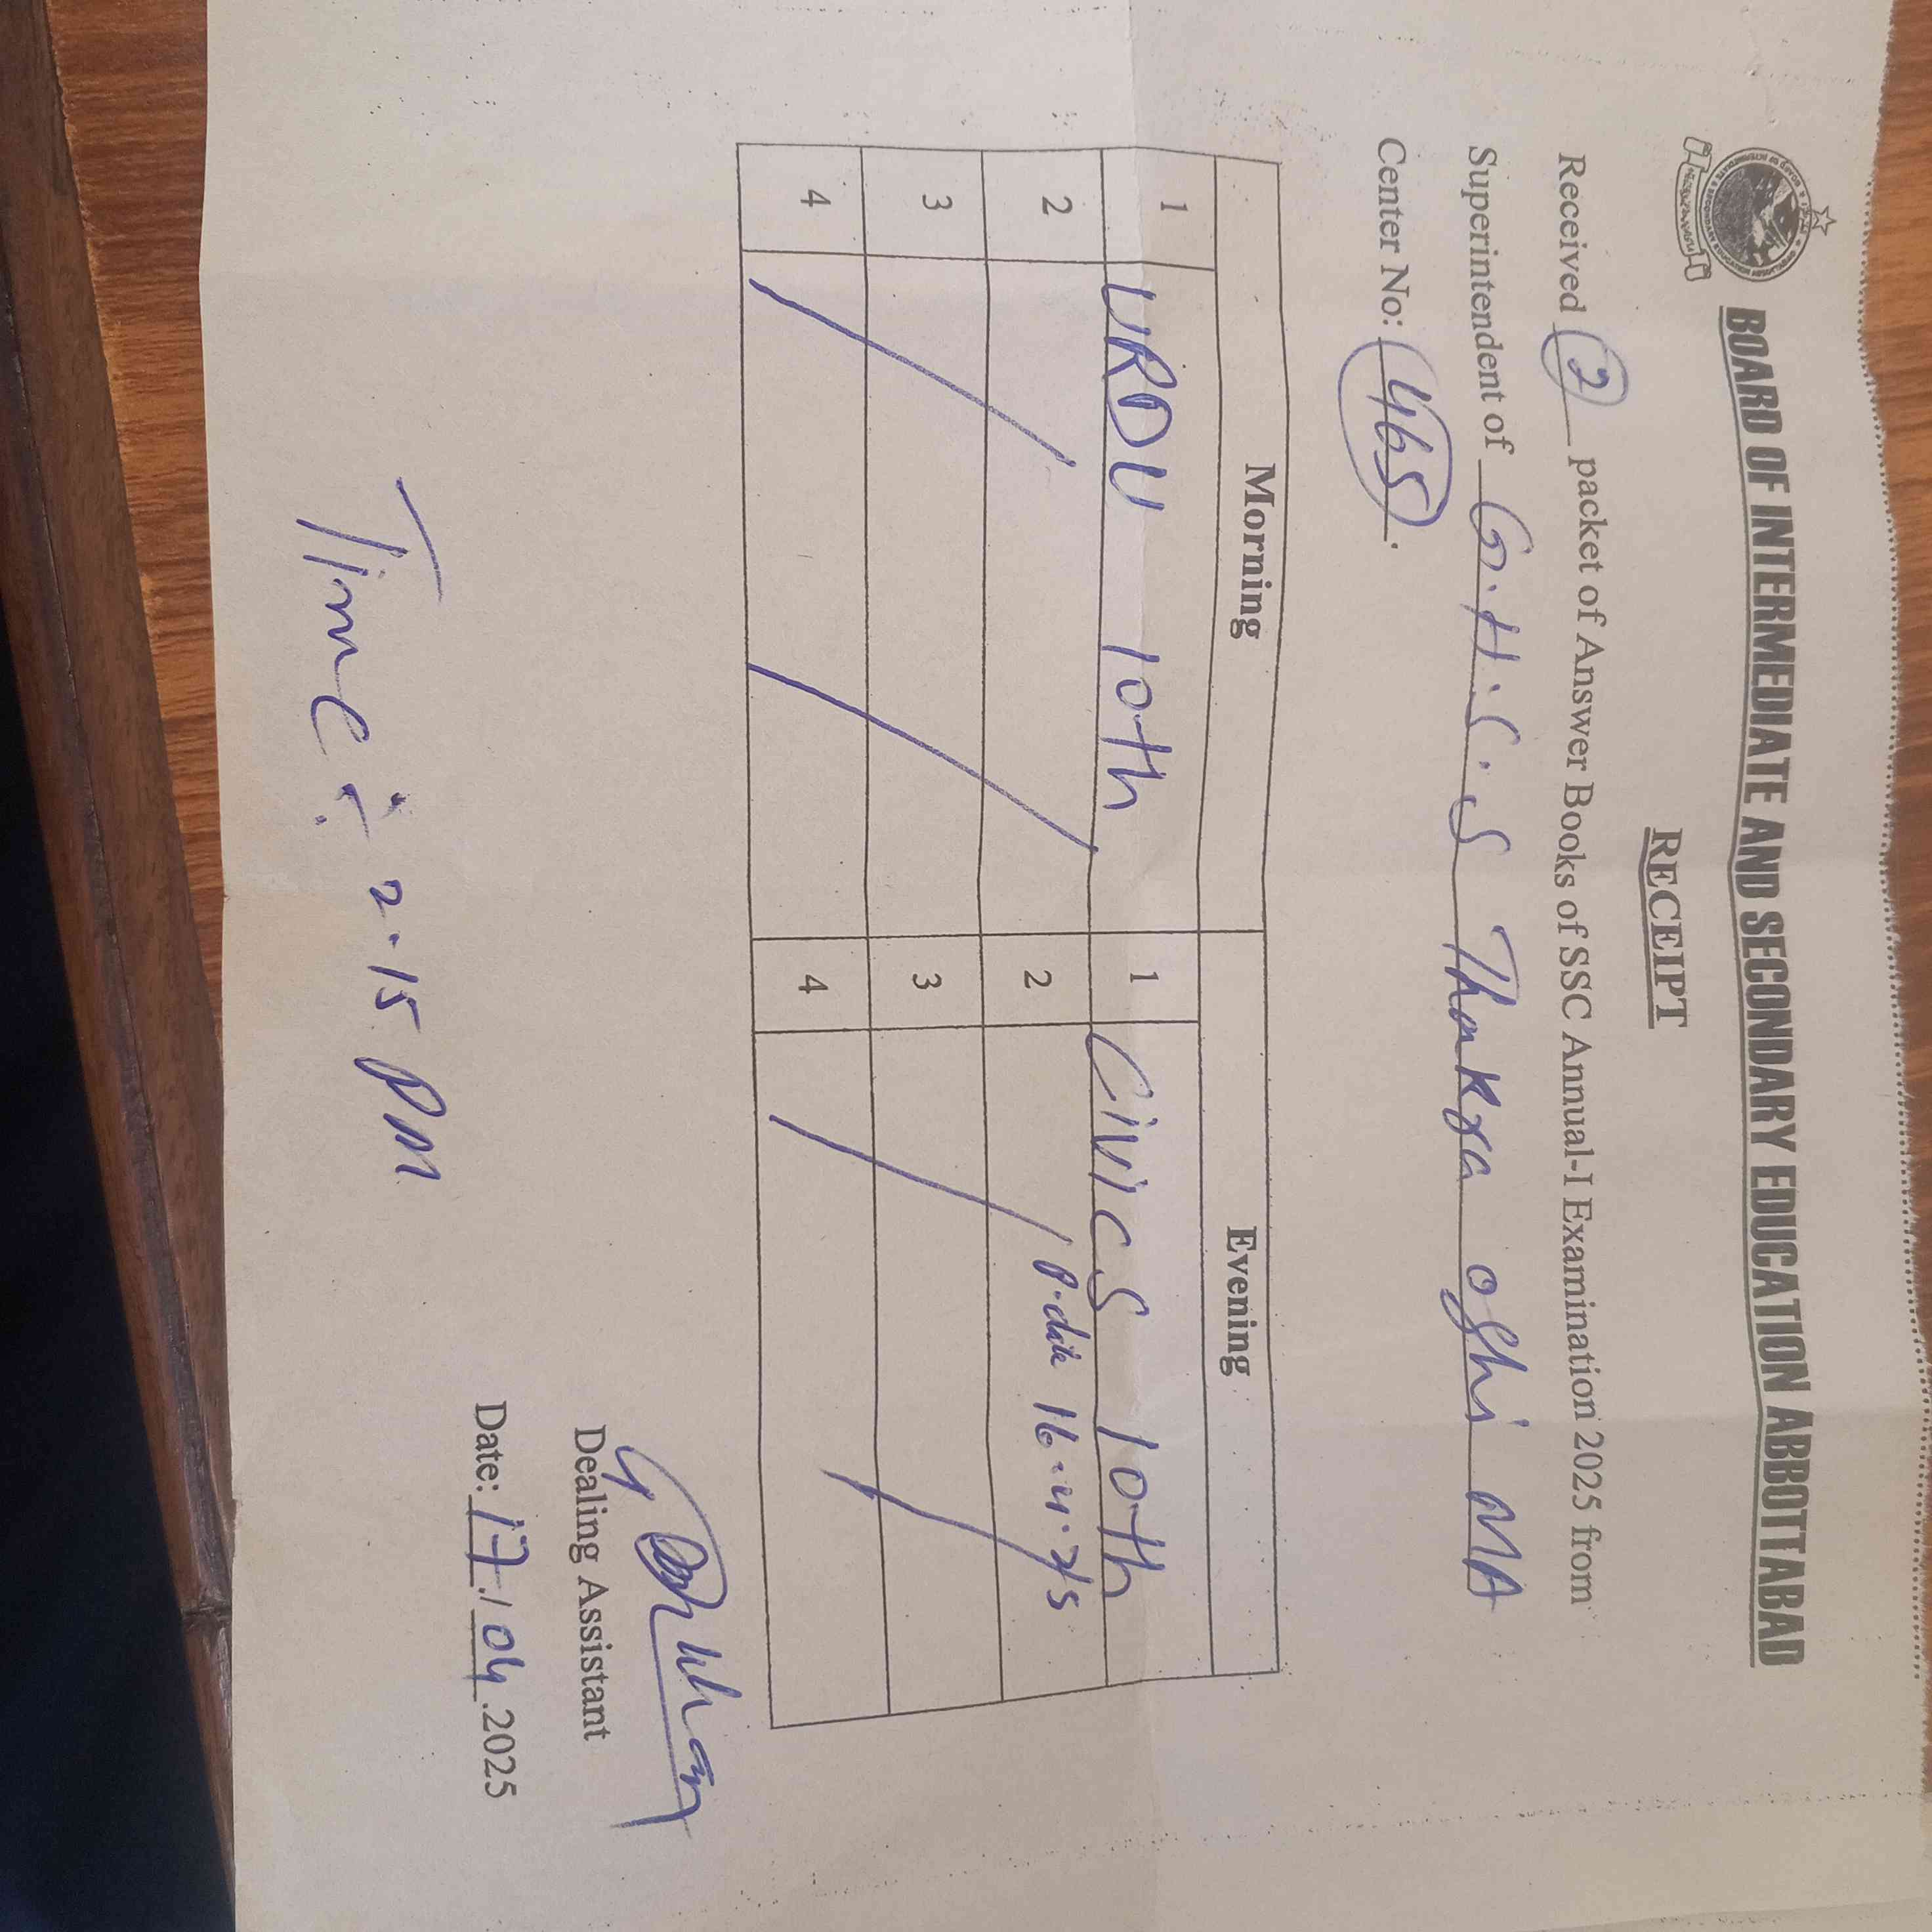 BOARD OF INTERMEDIATE AND SECONDARY EDUCATION ABBOTTABAD
RECEIPT
Received 2 packet of Answer Books of SSC Annual-I Examination 2025 from
Superintendent of G.H.S.S Thakra oghi MA
Center No: 465.
Morning Evening
1 URDU 10th 1 Civics 10th
2 2 P.date 16.4.25
3 3
4 4
Dealing Assistant
Date: 17/04.2025
Time : 2.15 PM